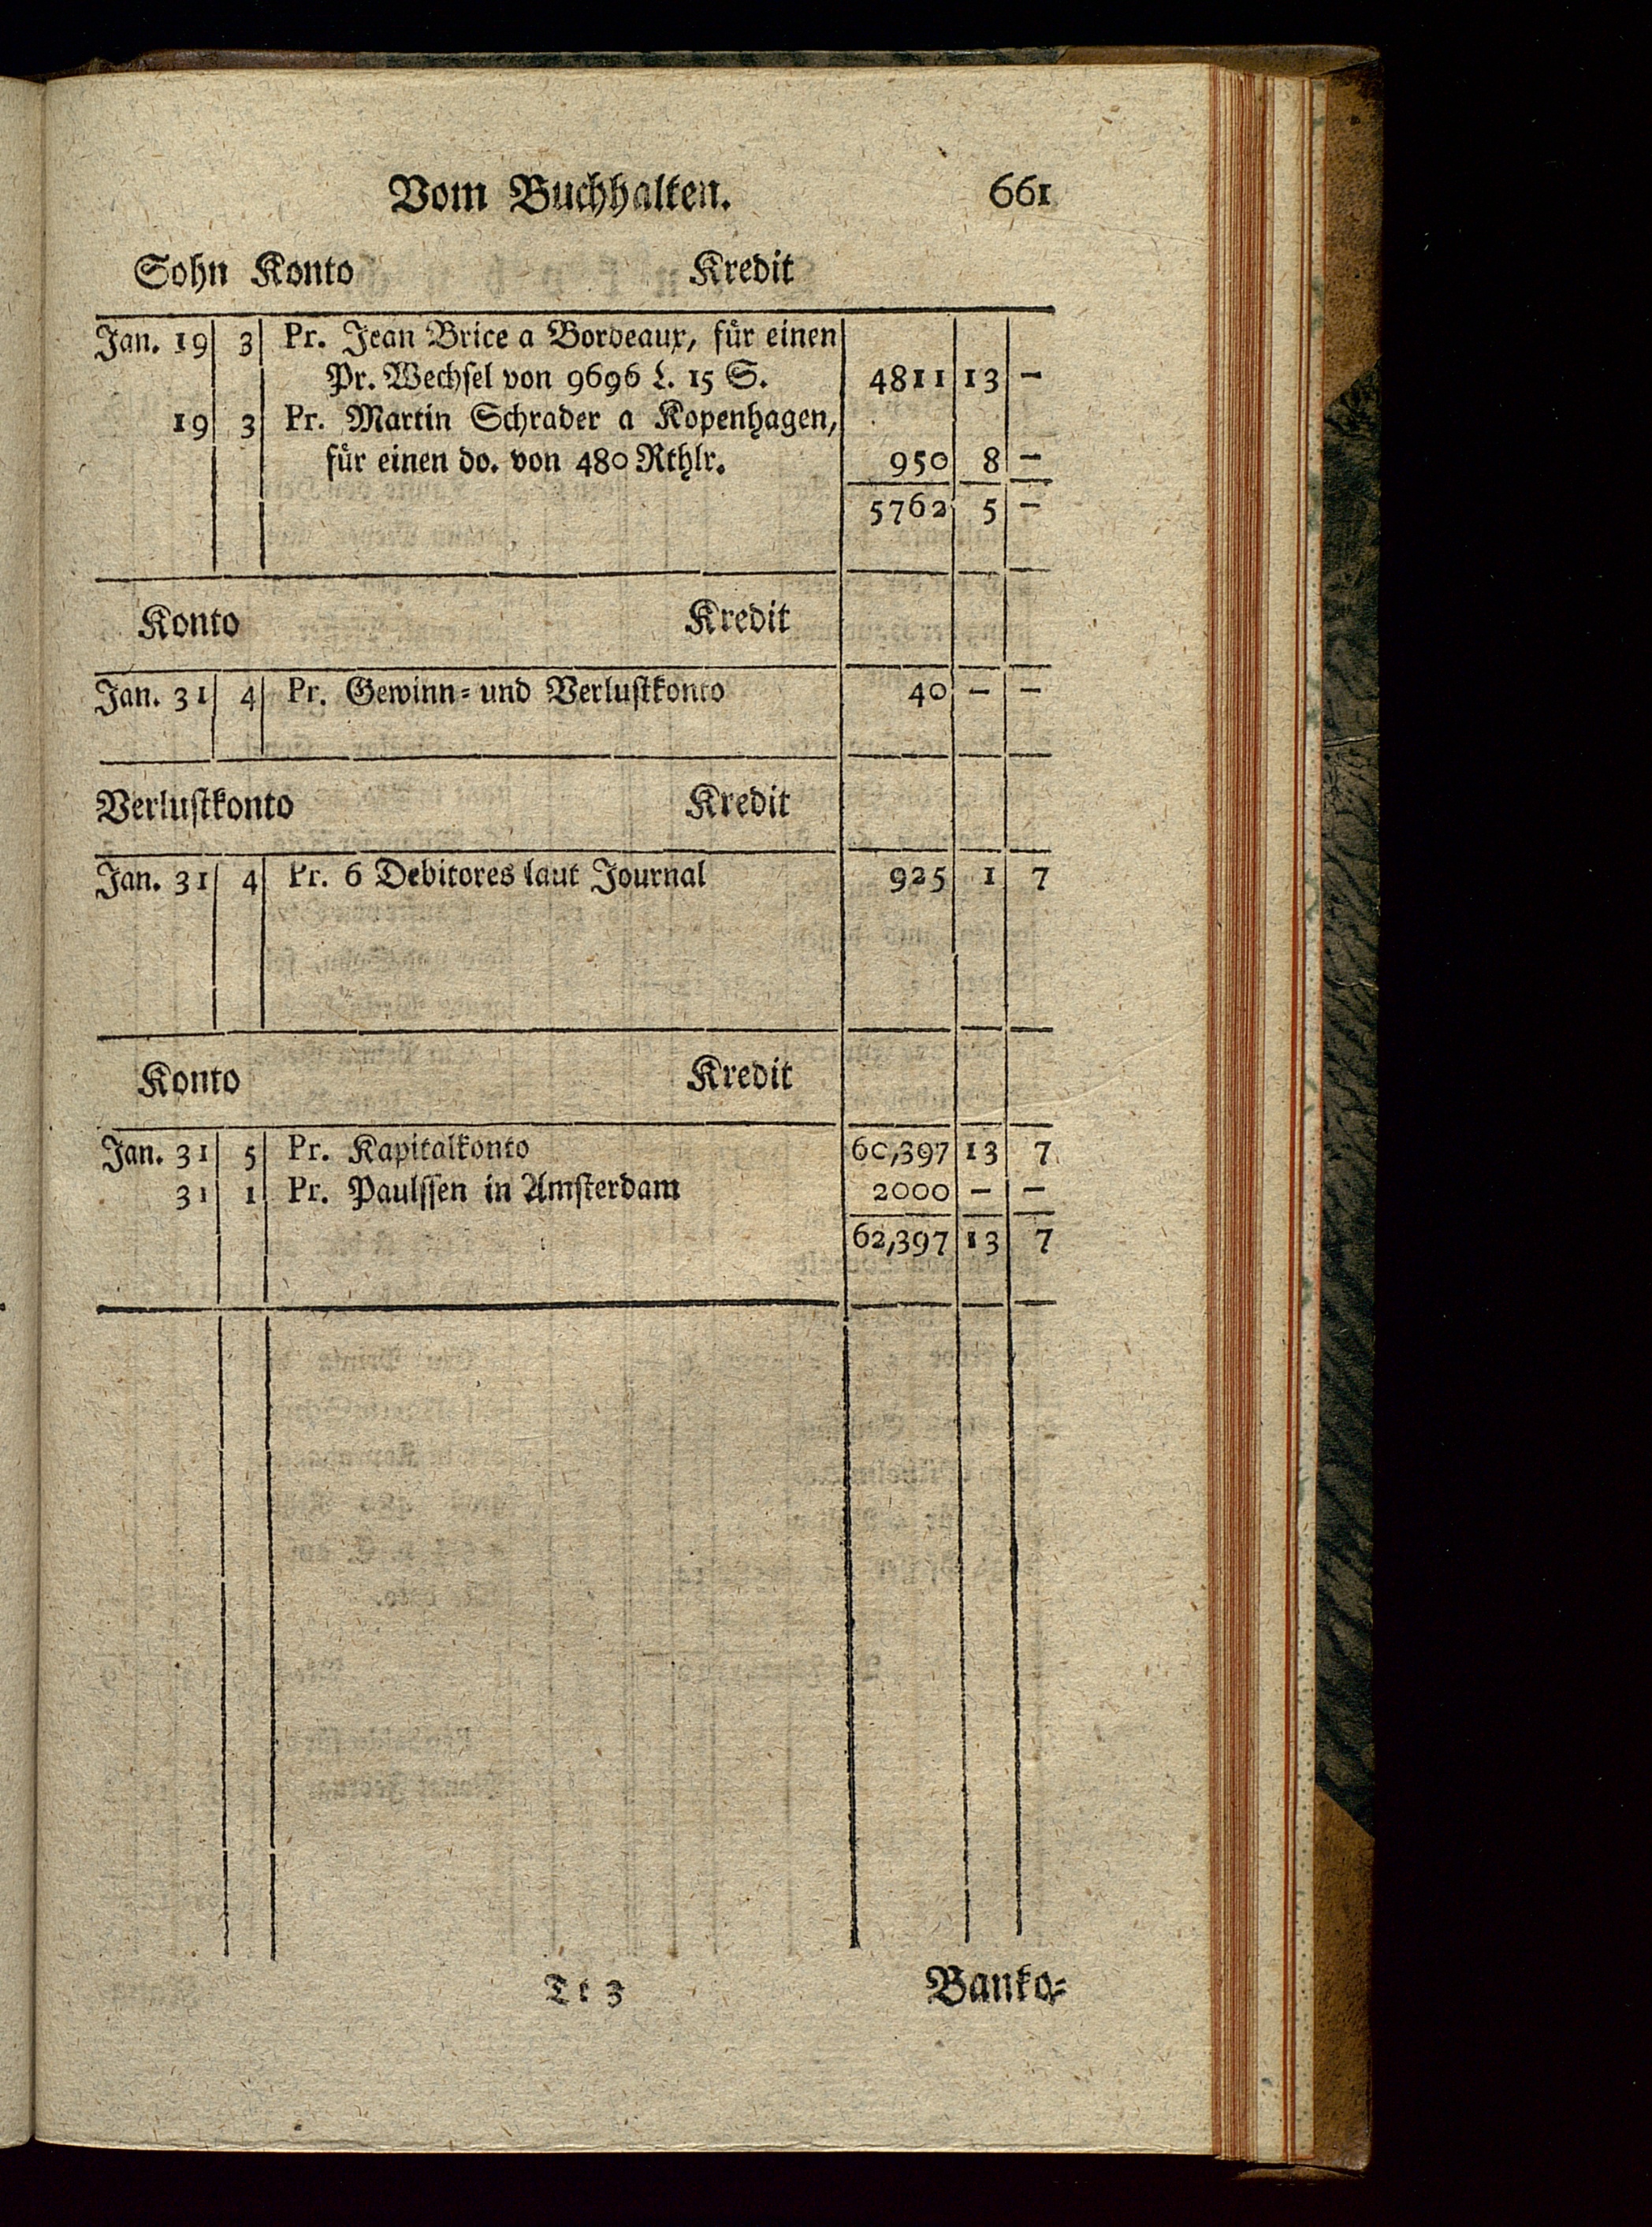 Vom Buchhalten. 661
Sohn Konto Kredit
Jan. 19 3 Pr. Jean Brice a Bordeaux, für einen
Pr. Wechsel von 9696 L. 15 S. 4811 13 —
19 3 Pr. Martin Schrader a Kopenhagen,
für einen do. von 480 Rthlr. 950 8 —
5762 5 —
Konto Kredit
Jan. 31 4 Pr. Gewinn- und Verlustkonto 40 — —
Verlustkonto Kredit
Jan. 31 4 Pr. 6 Debitores laut Journal 925 1 7
Konto Kredit
Jan. 31 5 Pr. Kapitalkonto 60,397 13 7
31 1 Pr. Paulssen in Amsterdam 2000 — —
62,397 13 7
Tt 3 Banko-